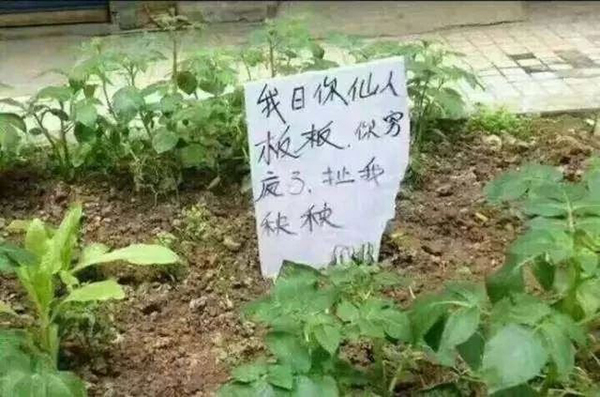 我日你仙人
板板.你穷
疯了.扯我
秧秧